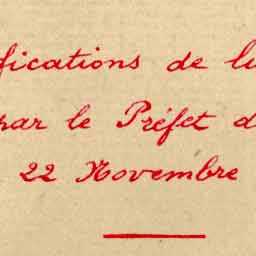 fications de lu
par le Préfet d
22 Novembre